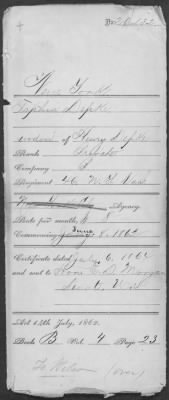 New York
Sophia Dipke
widow of Henry Dipke
Rank Private
Company
Regiment 46 N.Y. Vols
Agency
Rate per month, $ 8
Commencing June 8, 1862
Certificate dated July 6, 1864
and sent to Hon E. D. Morgan
Senate, U.S.
Act 14th July, 1862.
Book B Vol. 4 Page 23
(over)